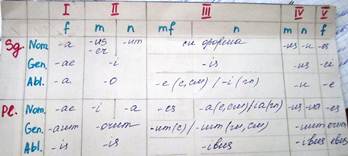 I II III IV V
f m n mf n m n f
Sg. Nom. -a -us -um см форма -us -u -es
-er
Gen. -ae -i -is -us -ei
Abl. -a -o -e (с, см) / -i (гл) -u -e
Pl. Nom. -ae -i -a -es -a (с, см) / ia (гл) -us -ua -es
Gen. -arum -orum -um (с) / -ium (гл, см) -uum -erum
Abl. -is -is -ibus -ibus -ebus